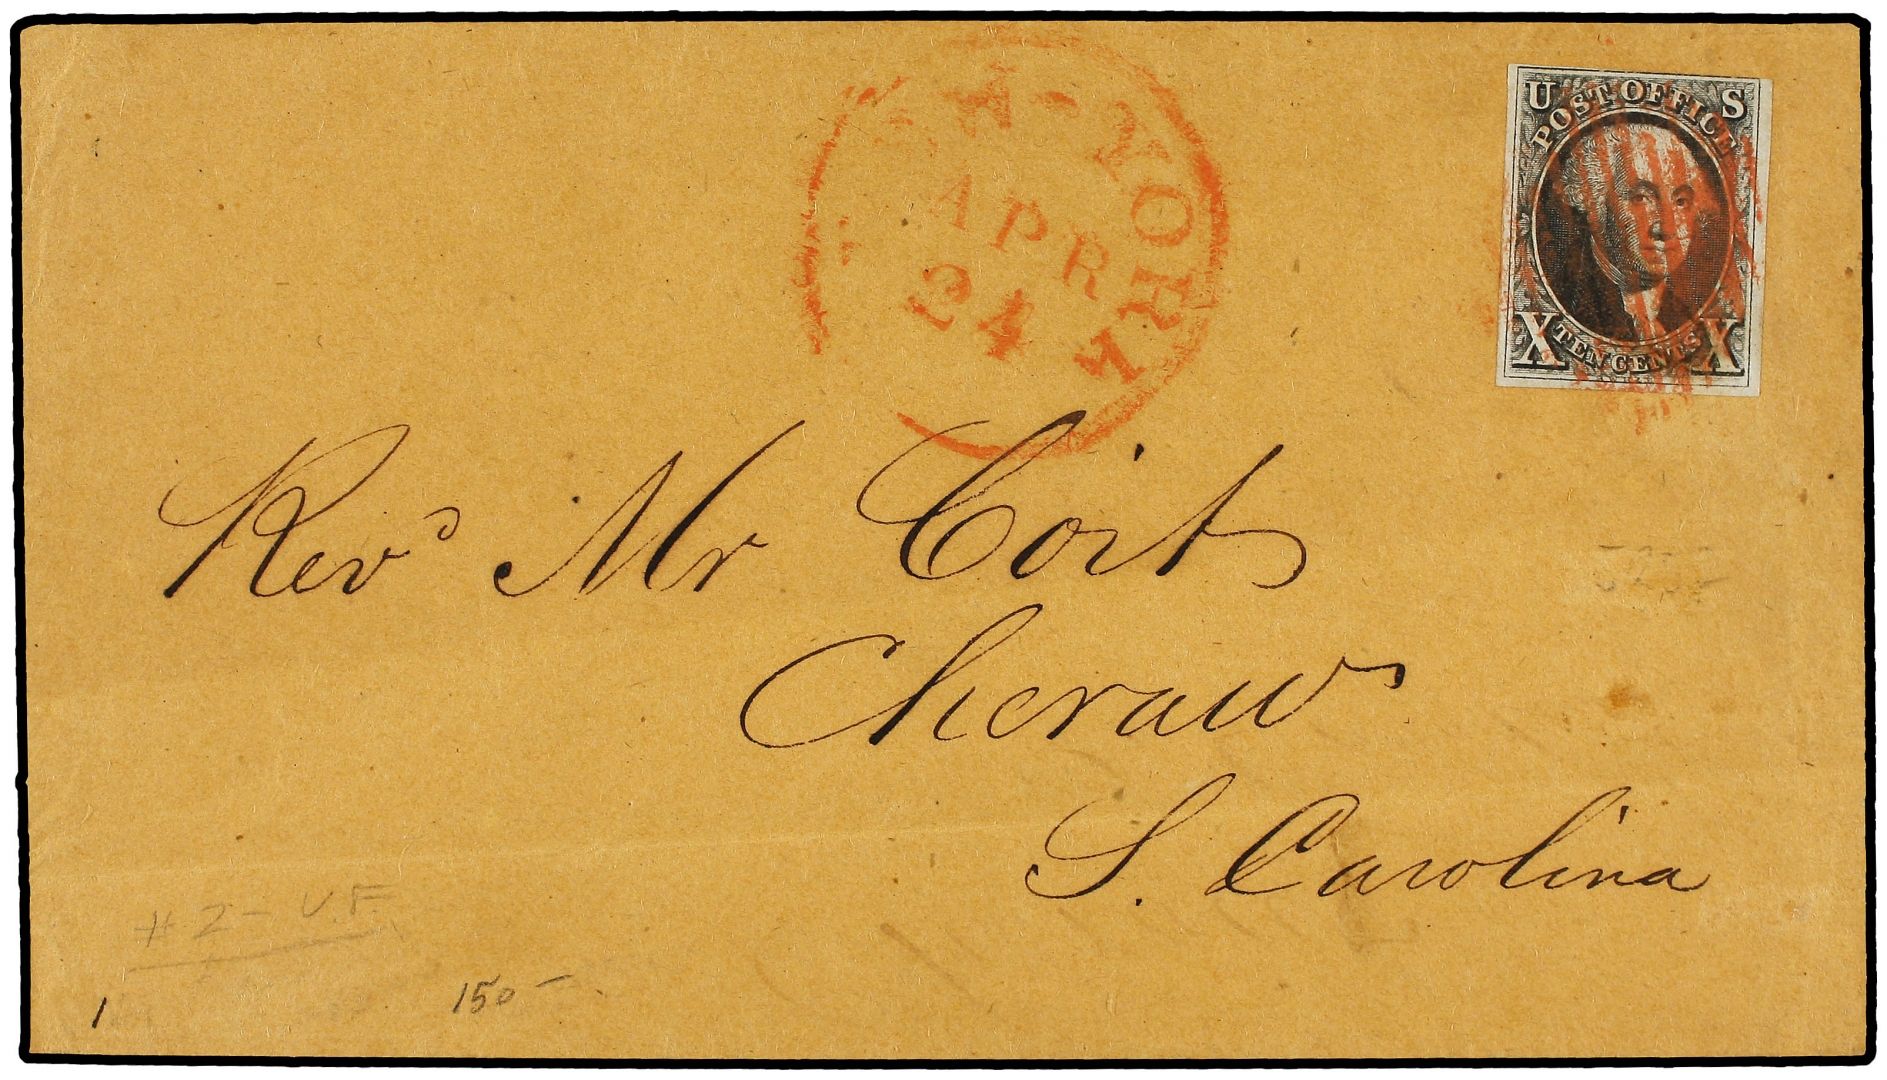 NEW-YORK
APR
24
U S
POST OFFICE
X TEN CENTS X
Revd Mr Coit
Cheraw
S. Carolina
#2- V.F.
1
150-